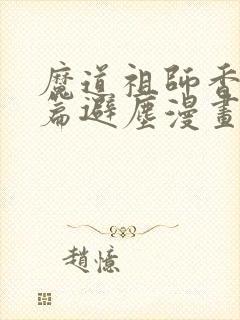 魔道祖師香
篇避塵漫畫
趙憶